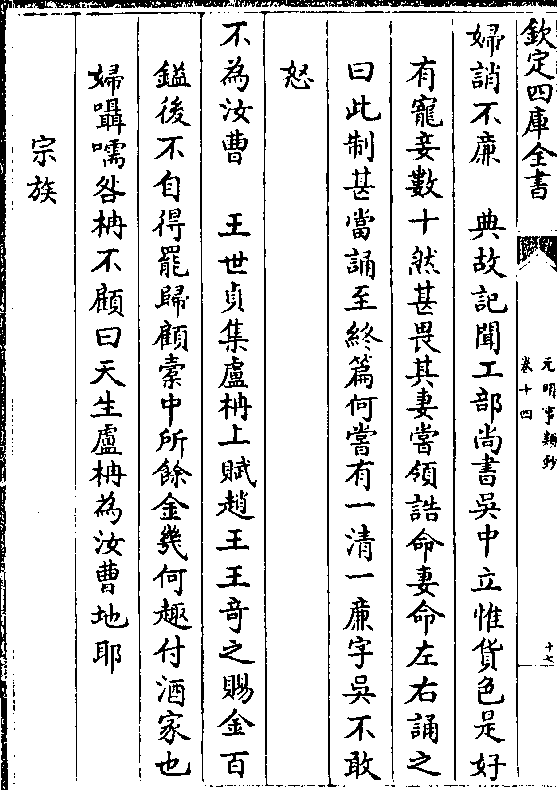 欽定四庫全書
元明事類鈔
卷十四
十七
婦誚不廉　典故記聞工部尚書吳中立惟貨色是好
有寵妾數十然甚畏其妻嘗領誥命妻命左右誦之
曰此制甚當誦至終篇何嘗有一清一廉字吳不敢
怒
不為汝曹　王世貞集盧柟上賦趙王王竒之賜金百
鎰後不自得罷歸顧橐中所餘金幾何趣付酒家也
婦囁嚅咎柟不顧曰天生盧柟為汝曹地耶
宗族